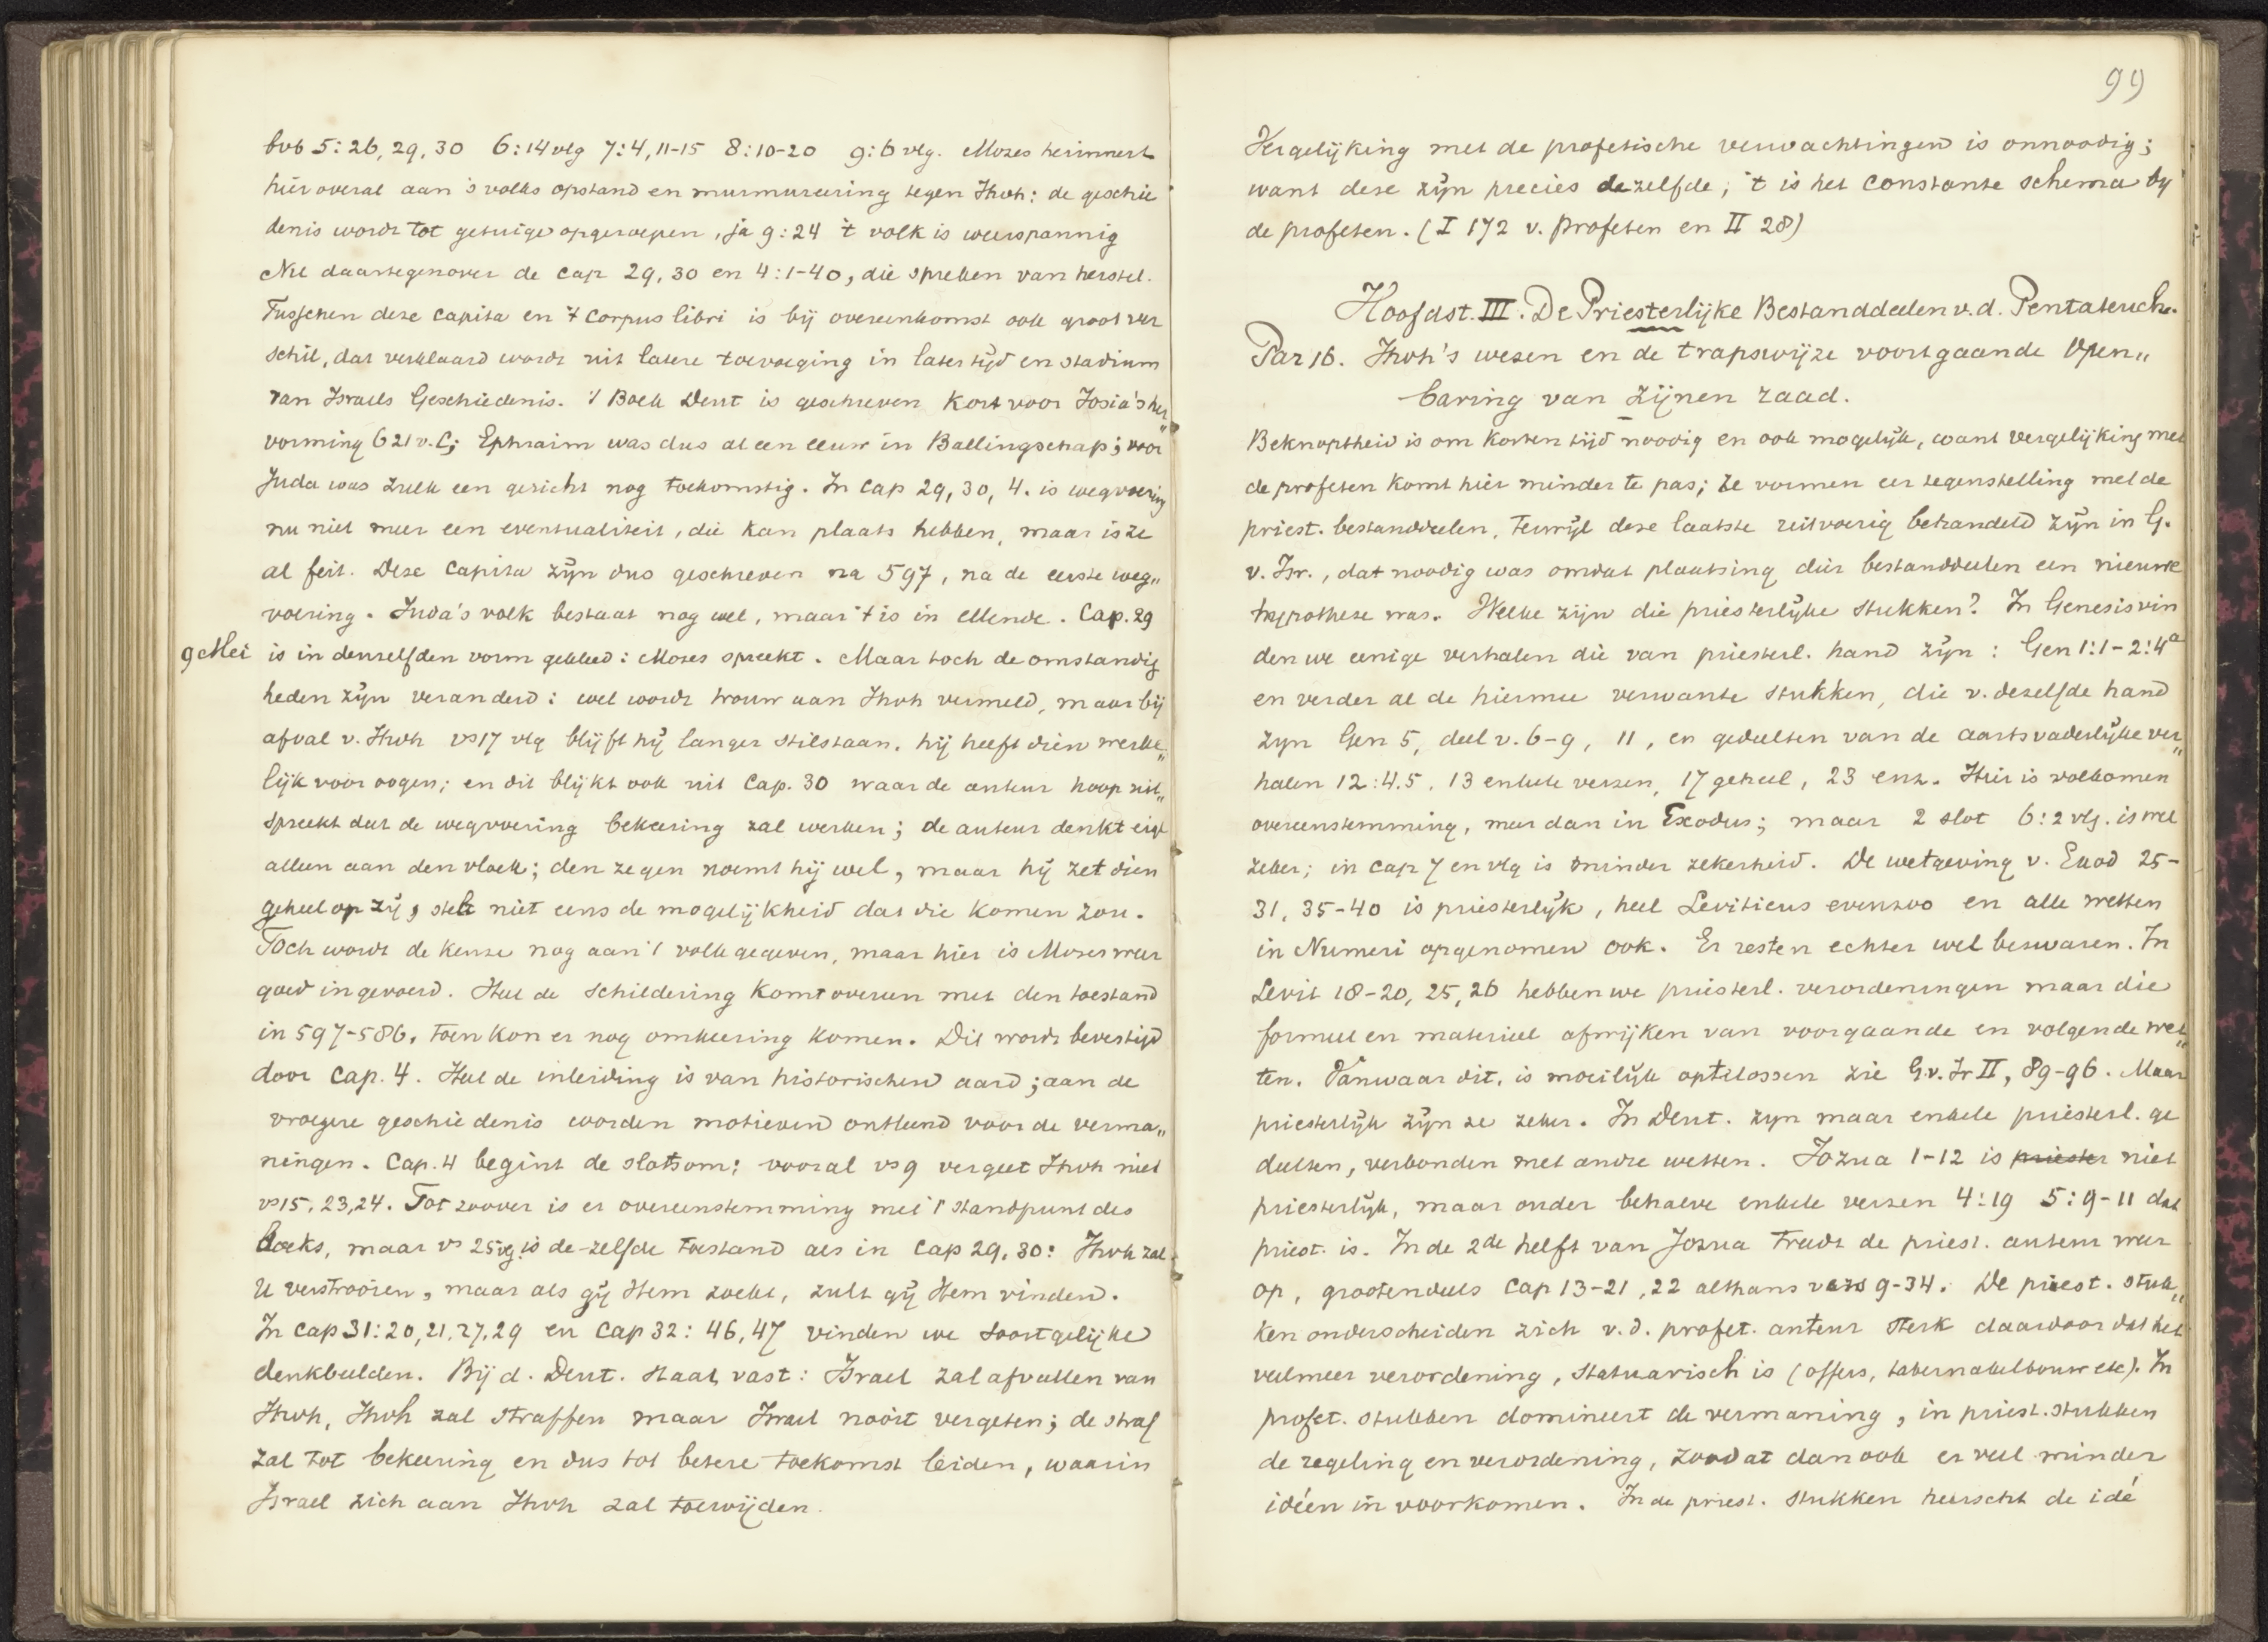 bvb 5:26, 29, 30 6:14 vlg 7:4, 11-15 8:10-20 9:6 vlg. Mozes herinnert
hier overal aan 's volks opstand en murmureering tegen Jhvh: de geschie
denis wordt tot getuige opgeroepen, ja 9:24 't volk is weerspannig
Nu daartegenover de cap 29, 30 en 4:1-40, die spreken van herstel.
Tusschen deze capita en 't corpus libri is bij overeenkomst ook groot ver
schil, dat verklaard wordt uit latere toevoeging in later tijd en stadium
van Israels Geschiedenis. 't Boek Deut is geschreven kort voor Josia's her„
vorming 621 v.C; Ephraim was dus al een eeuw in Ballingschap; voor
Juda was zulk een gericht nog toekomstig. In cap 29, 30, 4. is wegvoering
nu niet meer een eventualiteit, die kan plaats hebben, maar is ze
al feit. Deze capita zijn dus geschreven na 597, na de eerste weg„
voering. Juda's volk bestaat nog wel, maar 't is in ellende. Cap. 29
9 Mei is in denzelfden vorm gekleed: Mozes spreekt. Maar toch de omstandig
heden zijn veranderd: wel wordt trouw aan Jhvh vermeld, maar bij
afval v. Jhvh vs 17 vlg blijft hij langer stilstaan. hij heeft dien werke„
lijk voor oogen; en dit blijkt ook uit Cap. 30 waar de auteur hoop uit„
spreekt dat de wegvoering bekeering zal werken; de auteur denkt eigl
alleen aan den vloek; den zegen noemt hij wel, maar hij zet dien
geheel op zij, stelt niet eens de mogelijkheid dat die komen zou.
Toch wordt de keuze nog aan 't volk gegeven, maar hier is Mozes weer
goed ingevoerd. Heel de schildering komt overeen met den toestand
in 597-586, toen kon er nog omkeering komen. Dit wordt bevestigd
door cap. 4. Heel de inleiding is van historischen aard; aan de
vroegere geschiedenis worden motieven ontleend voor de verma„
ningen. Cap. 4 begint de slotsom; vooral vs 9 vergeet Jhvh niet
vs 15, 23, 24. Tot zoover is er overeenstemming met 't standpunt des
boeks, maar vs 25 vg. is de-zelfde toestand als in cap 29, 30: Jhvh zal
U verstrooien, maar als gij Hem zoekt, zult gij Hem vinden.
In cap 31:20, 21, 27, 29 en cap 32: 46, 47 vinden we soortgelijke
denkbeelden. Bij d. Deut. staat vast: Israel zal afvallen van
Jhvh, Jhvh zal straffen maar Israel nooit vergeten; de straf
zal tot bekeering en dus tot betere toekomst leiden, waarin
Israel zich aan Jhvh zal toewijden.
99
Vergelijking met de profetische verwachtingen is onnoodig;
want deze zijn precies dezelfde; 't is het constante schema bij
de profeten. (I 172 v. Profeten en II 28)
Hoofdst. III. De Priesterlijke Bestanddeelen v.d. Pentateuch.
Par 16. Jhvh's wezen en de trapswijze voortgaande Open„
baring van zijnen raad.
Beknoptheid is om korten tijd noodig en ook mogelijk, want vergelijking met
de profeten komt hier minder te pas; ze vormen eer tegenstelling met de
priest. bestanddeelen, terwijl deze laatste uitvoerig behandeld zijn in G.
v. Isr., dat noodig was omdat plaatsing dier bestanddeelen een nieuwe
hypothese was. Welke zijn die priesterlijke stukken? In Genesis vin
den we eenige verhalen die van priesterl. hand zijn: Gen 1:1-2:4a
en verder al de hiermee verwante stukken, die v. dezelfde hand
zijn Gen 5, deel v. 6-9, 11, en gedeelten van de aartsvaderlijke ver„
halen 12:4.5, 13 enkele verzen, 17 geheel, 23 enz. Hier is volkomen
overeenstemming, meer dan in Exodus; maar 2 slot 6:2 vlg. is wel
zeker; in cap 7 en vlg is minder zekerheid. De wetgeving v. Exod 25-
31, 35-40 is priesterlijk, heel Leviticus evenzoo en alle wetten
in Numeri opgenomen ook. Er resten echter wel bezwaren. In
Levit 18-20, 25, 26 hebben we priesterl. verordeningen maar die
formeel en materieel afwijken van voorgaande en volgende wet„
ten. Vanwaar dit, is moeilijk optelossen zie G.v. Isr II, 89-96. Maar
priesterlijk zijn ze zeker. In Deut. zijn maar enkele priesterl. ge
deelten, verbonden met andre wetten. Jozua 1-12 is priester niet
priesterlijk, maar ouder behalve enkele verzen 4:19 5:9-11 dat
priest. is. In de 2de helft van Jozua treedt de priest. auteur weer
op, grootendeels cap 13-21, 22 althans vers 9-34. De priest. stuk„
ken onderscheiden zich v.d. profet. auteur sterk daardoor dat het
veelmeer verordening, statuarisch is (offers, tabernakelbouw etc). In
profet. stukken domineert de vermaning, in priest. stukken
de regeling en verordening, zoodat dan ook er veel minder
ideën in voorkomen. In de priest. stukken heerscht de idé